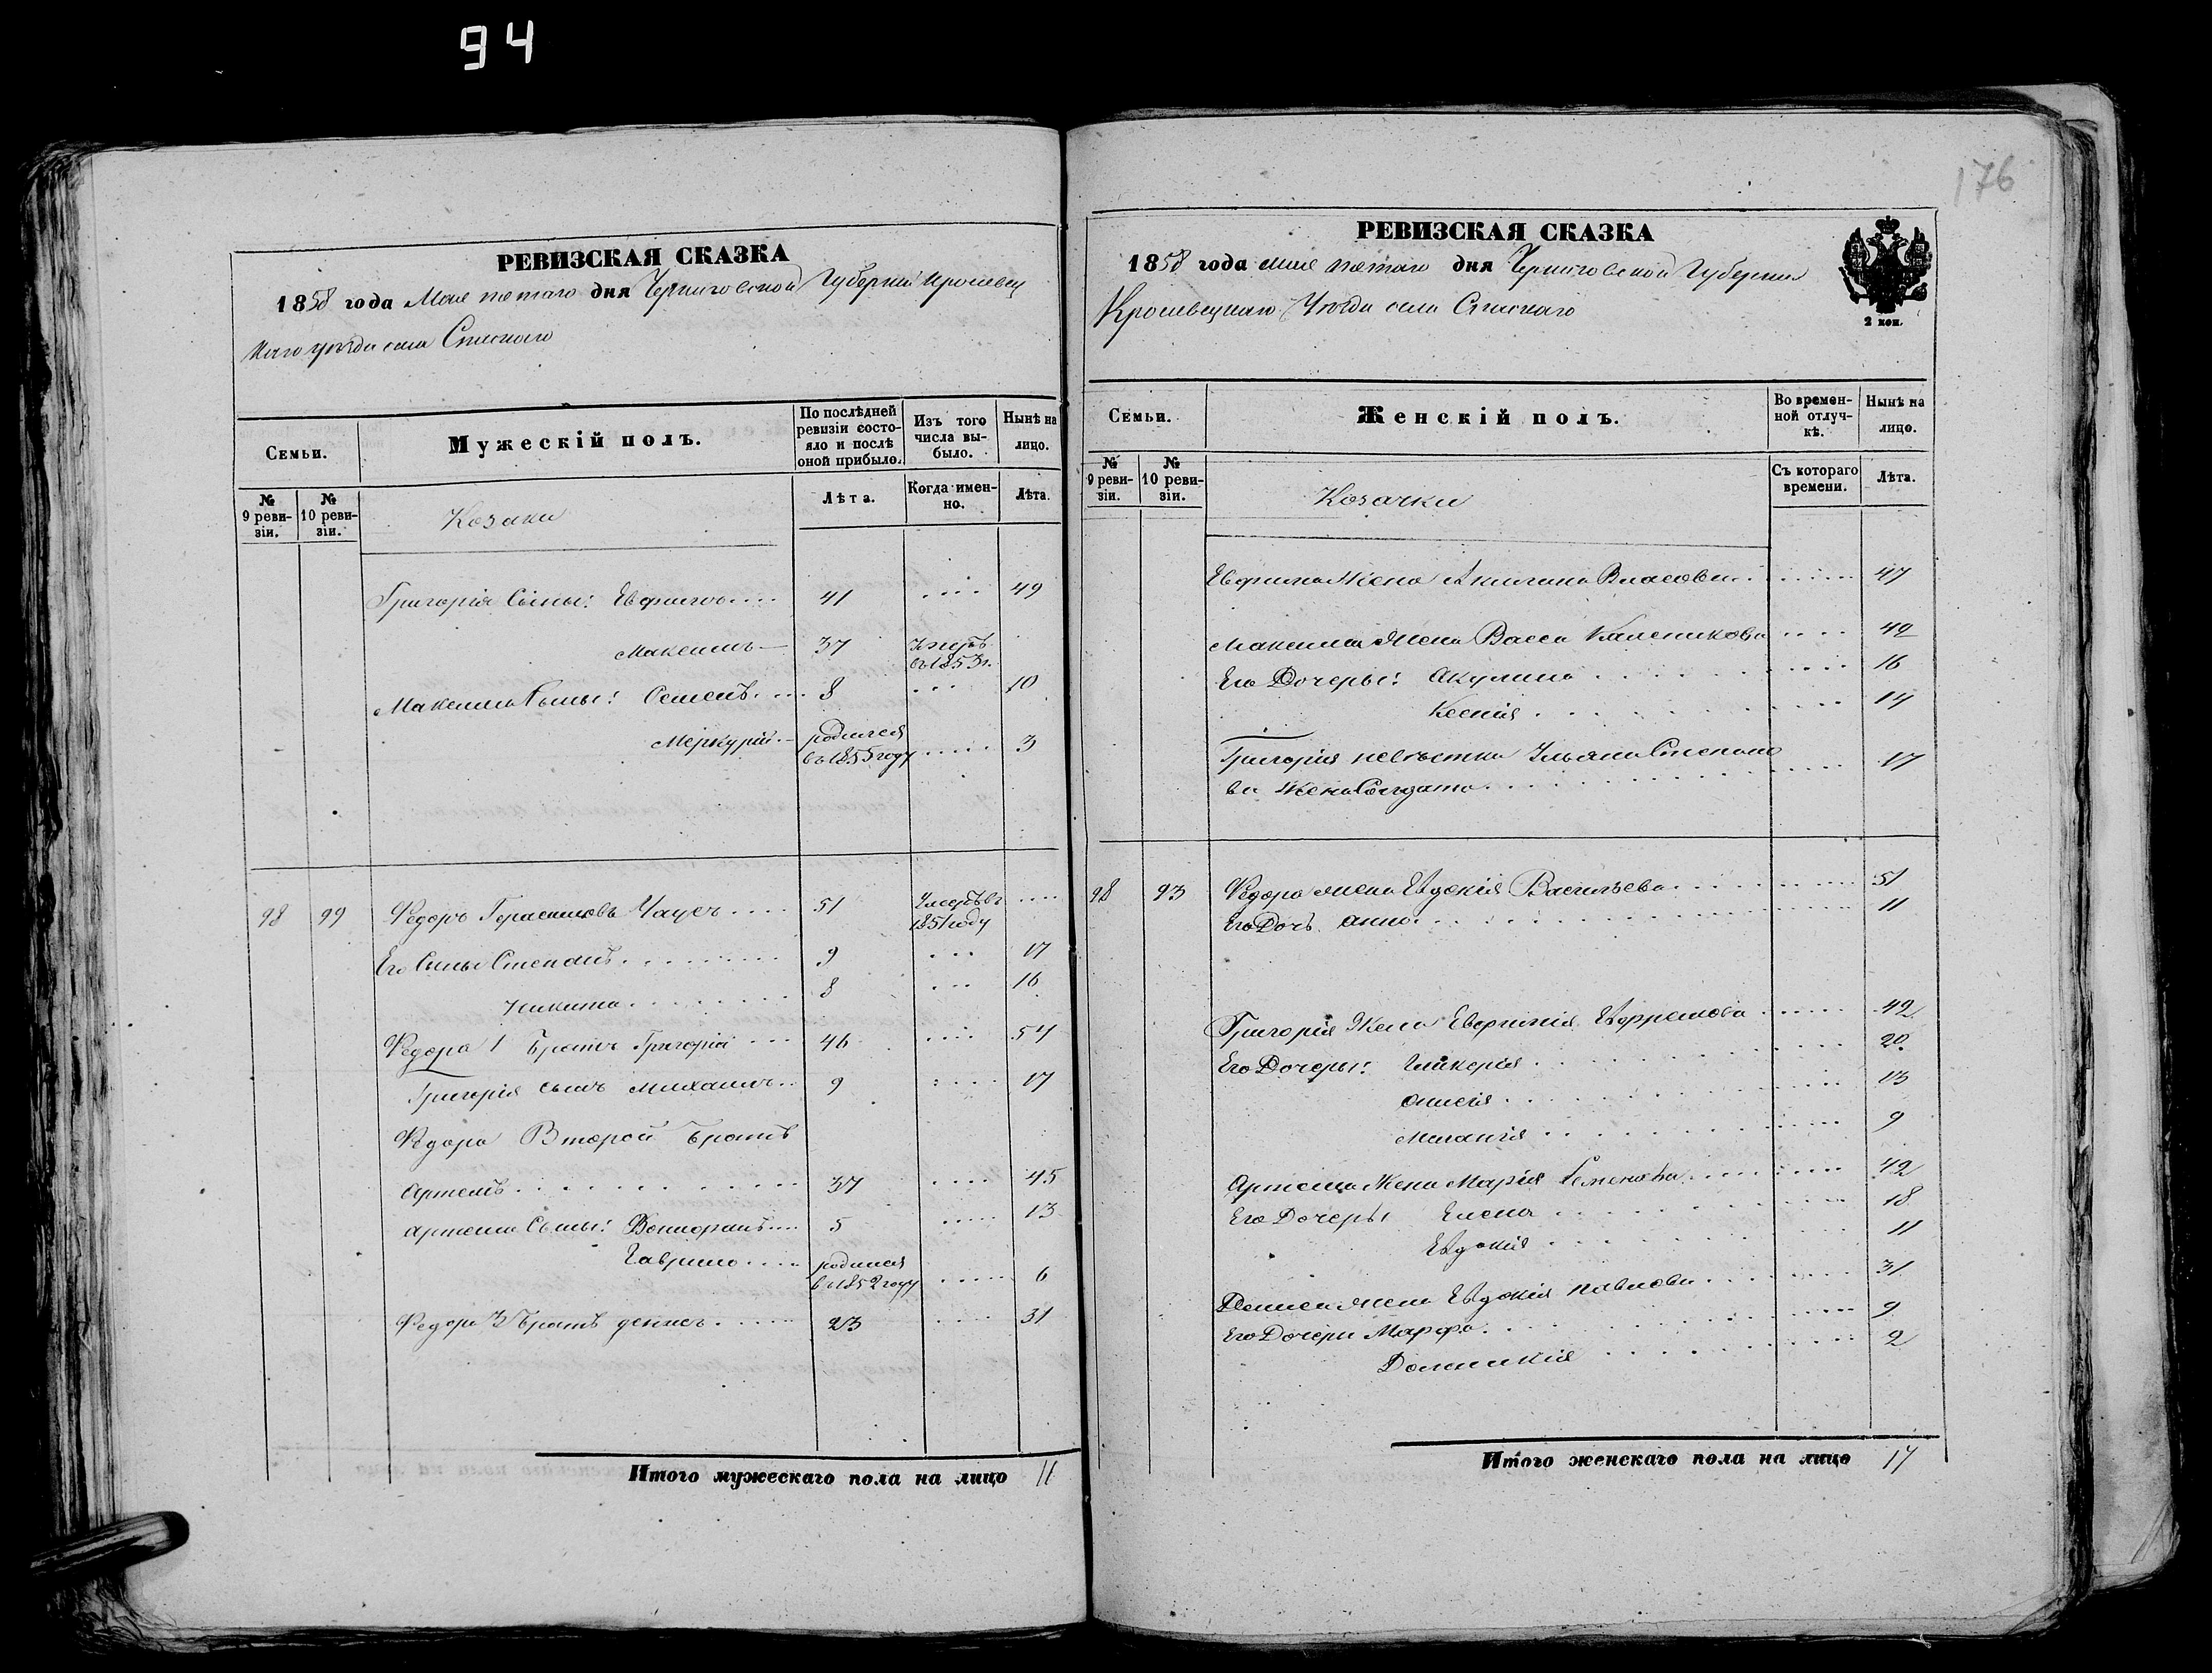 94
176
РЕВИЗСКАЯ СКАЗКА
1858 года Мая пятаго дня Черниговской Губерніи Кролевец
каго уѣзда села Спаскаго
Семьи.
Мужескій полъ.
По послѣдней ревизіи состояло и послѣ оной прибыло.
Изъ того числа выбыло.
Нынѣ на лицо.
№ 9 ревизіи.
№ 10 ревизіи.
Козаки
Лѣта.
Когда именно.
Лѣта.
Григорія Сыны: Евфимъ .... 41 .... 49
Максимъ 37 Умеръ въ 1853 г.
Максима Сыны: Семенъ .... 8 ... 10
Меркурій родился въ 1855 году ..... 3
98 99 Федоръ Герасимовъ Чаусъ .... 51 Умеръ въ 1851 году ....
Его Сыны Степанъ 9 ... 17
Никита 8 ... 16
Федора 1 Братъ Григорій ... 46 .... 54
Григорія сынъ Михаилъ .. 9 .... 17
Федора Второй Братъ
Артемъ 37 .... 45
Артема Сыны: Вонифатъ .... 5 ..... 13
Гаврило .... родился въ 1852 году ..... 6
Федора 3 Братъ Денисъ 23 .... 31
Итого мужескаго пола на лицо 11
РЕВИЗСКАЯ СКАЗКА
1858 года мая пятаго дня Черниговской Губерніи
Кролевецкаго Уѣзда села Спаскаго
2 коп.
Семьи.
Женскій полъ.
Во временной отлучкѣ.
Нынѣ на лицо.
№ 9 ревизіи.
№ 10 ревизіи.
Козачки
Съ котораго времени.
Лѣта.
Евфима Жена Акилина Власова 47
Максима Жена Васса Каленикова .... 42
Его Дочеры: Акулина 16
Ксенія 14
Григорія невѣстка Ульяна Степано
ва Жена Солдата 17
98 93 Федора жена Евдокія Васильева 51
Его Дочь Анна 11
Григорія Жена Евфимія Ефремова 42
Его Дочеры: Гликерія 20
Анисія 13
Меланія 9
Артема Жена Марія Семенова 42
Его Дочеры Елена 18
Евдокія 11
Дениса жена Евдокія Павлова 31
Его Дочери Марфа 9
Домникія 2
Итого женскаго пола на лицо 17